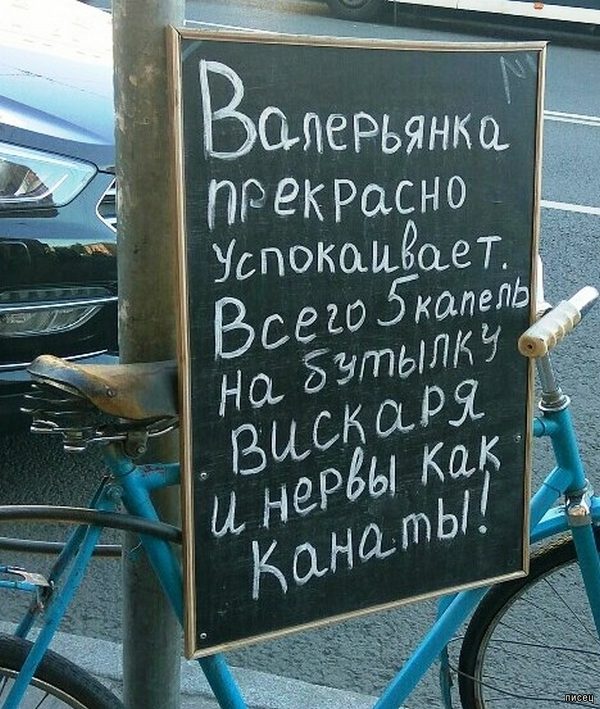 Валерьянка
прекрасно
успокаивает.
Всего 5 капель
на бутылку
вискаря
и нервы как
канаты!
писец